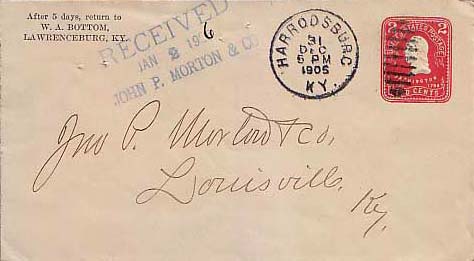 After 5 days, return to
W. A. BOTTOM,
LAWRENCEBURG, KY.
RECEIVED
JAN 2 190
6
JOHN P. MORTON & CO
HARRODSBURG
31
DEC
5 PM
1905
KY.
STATES POSTAGE
WASHINGTON
CENTS
Jno P. Morton & co,
Louisville,
Ky.